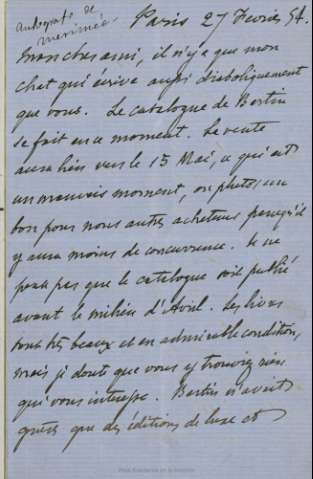 autografo de
merimée.
Paris 27 Fevrier 54.
Mon cher ami, il n'y a que mon
chat qui écrive aussi diaboliquement
que vous. Le catalogue de Bertin
se fait en ce moment. La vente
aura lieu vers le 15 Mai, ce qui est
un mauvais moment, ou plutot un
bon pour nous autres acheteurs parcequ'il
y aura moins de concurrence. Je ne
pense pas que le catalogue soit publié
avant le milieu d'Avril. Les livres
sont très beaux et en admirable condition,
mais je doute que vous y trouviez rien
qui vous interesse. Bertin n'avait
guères que des éditions de luxe et